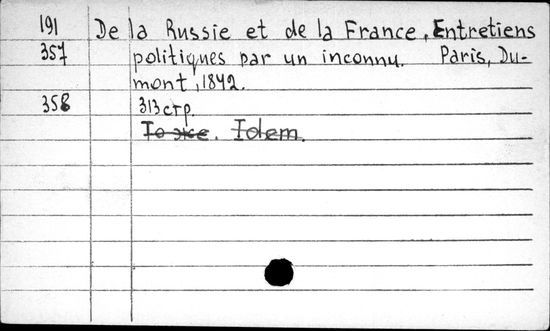 191 De la Russie et de la France. Entretiens
357 politiques par un inconnu. Paris, Du-
mont, 1842.
358 313 стр.
То же. Idem.